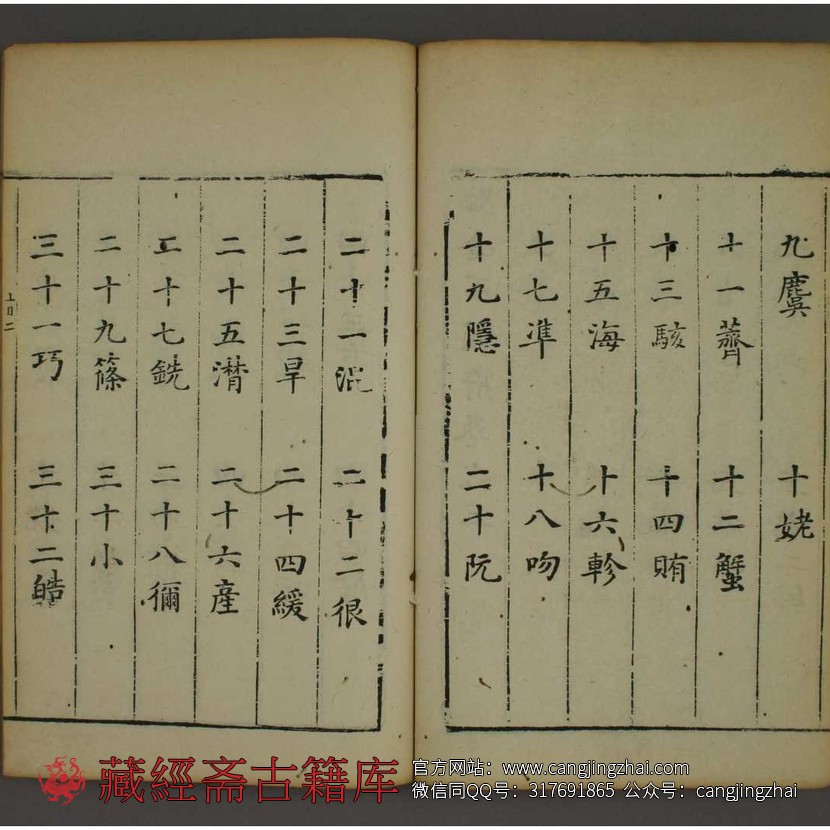 九麌 十姥
十一薺 十二蟹
十三駭 十四賄
十五海 十六軫
十七準 十八吻
十九隱 二十阮
二十一混 二十二很
二十三旱 二十四緩
二十五潸 二十六產
二十七銑 二十八獮
二十九篠 三十小
三十一巧 三十二皓
藏經斋古籍库
官方网站：www.cangjingzhai.com
微信同QQ号：317691865 公众号：cangjingzhai